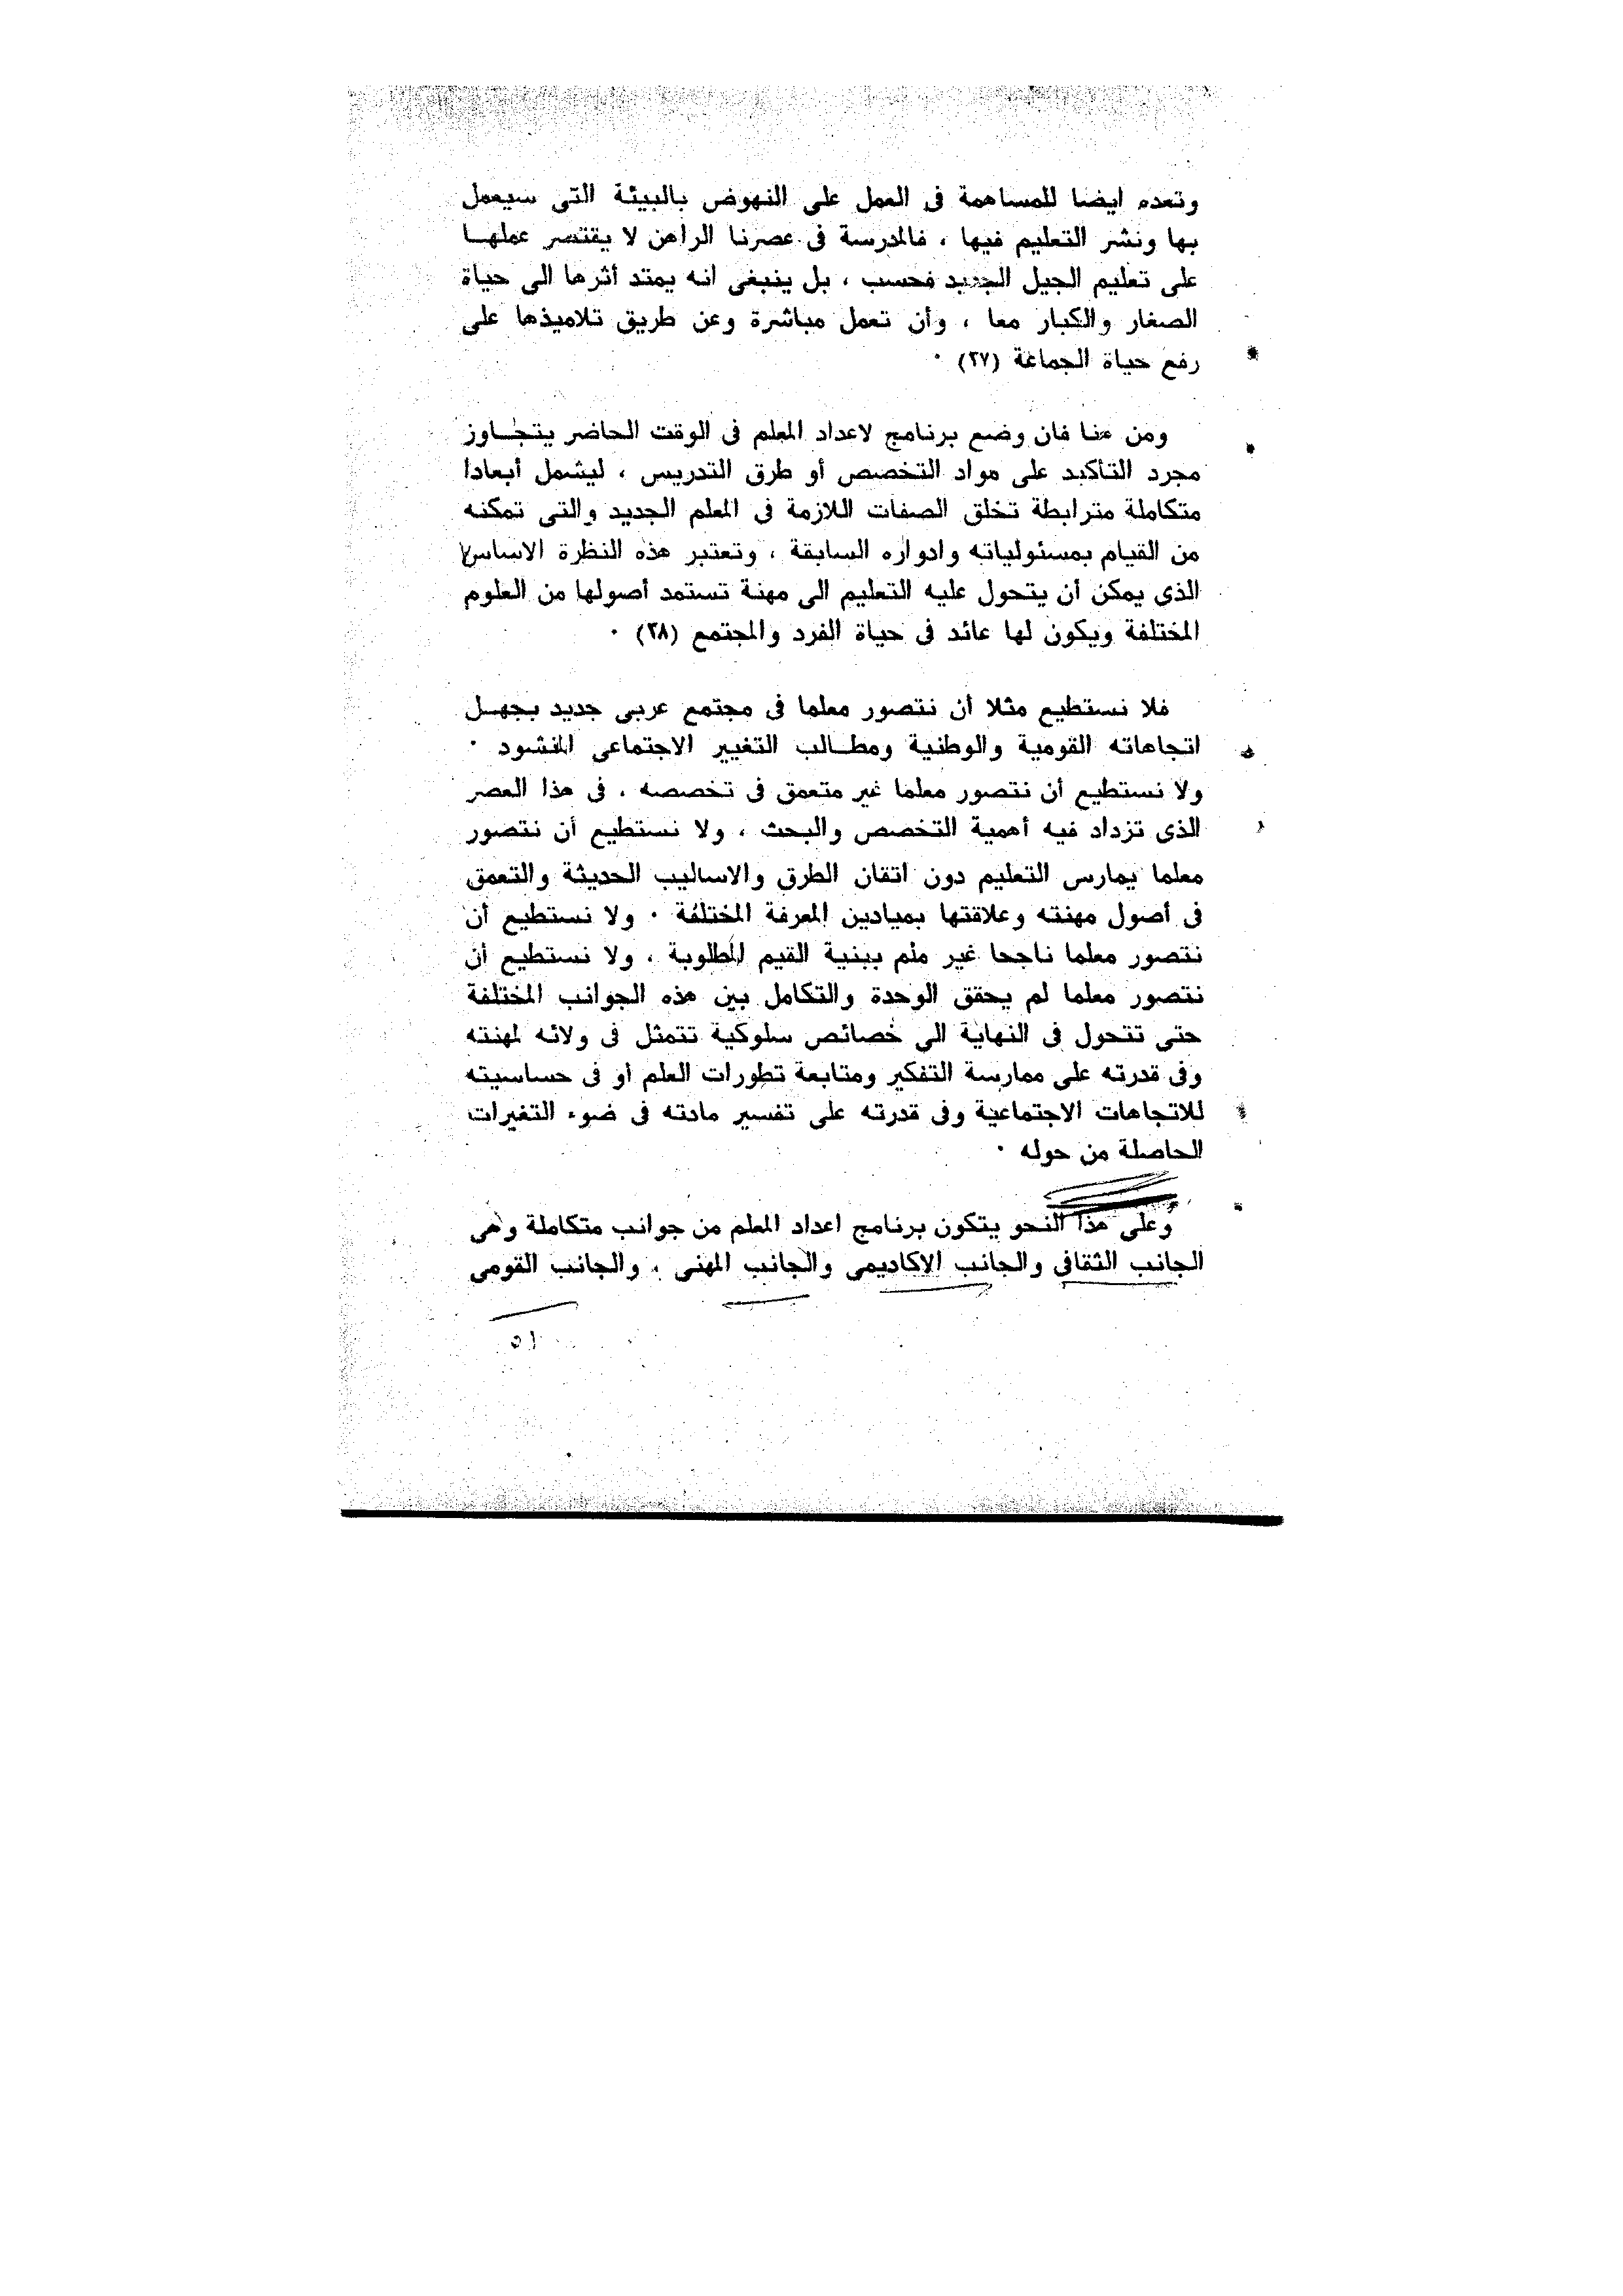 وتعده ايضا للمساهمة فى العمل على النهوض بالبيئة التى سيعمل
بها ونشر التعليم فيها ، فالمدرسة فى عصرنا الراهن لا يقتصر عملهـا
على تعليم الجيل الجديد فحسب ، بل ينبغى انه يمتد أثرها الى حياة
الصغار والكبار معا ، وأن تعمل مباشرة وعن طريق تلاميذها على
رفع حياة الجماعة (٢٧) ٠
ومن هنا فان وضع برنامج لاعداد المعلم فى الوقت الحاضر يتجـاوز
مجرد التأكيد على مواد التخصص أو طرق التدريس ، ليشمل أبعادا
متكاملة مترابطة تخلق الصفات اللازمة فى المعلم الجديد والتى تمكنه
من القيام بمسئولياته وادواره السابقة ، وتعتبر هذه النظرة الاساس
الذى يمكن أن يتحول عليه التعليم الى مهنة تستمد أصولها من العلوم
المختلفة ويكون لها عائد فى حياة الفرد والمجتمع (٢٨) ٠
فلا نستطيع مثلا أن نتصور معلما فى مجتمع عربى جديد يجهـل
اتجاهاته القومية والوطنية ومطـالب التغيير الاجتماعى المنشود ٠
ولا نستطيع أن نتصور معلما غير متعمق فى تخصصه ، فى هذا العصر
الذى تزداد فيه أهمية التخصص والبحث ، ولا نستطيع أن نتصور
معلما يمارس التعليم دون اتقان الطرق والاساليب الحديثة والتعمق
فى أصول مهنته وعلاقتها بميادين المعرفة المختلفة ٠ ولا نستطيع أن
نتصور معلما ناجحا غير ملم ببنية القيم المطلوبة ، ولا نستطيع أن
نتصور معلما لم يحقق الوحدة والتكامل بين هذه الجوانب المختلفة
حتى تتحول فى النهاية الى خصائص سلوكية تتمثل فى ولائه لمهنته
وفى قدرته على ممارسة التفكير ومتابعة تطورات العلم أو فى حساسيته
للاتجاهات الاجتماعية وفى قدرته على تفسير مادته فى ضوء التغيرات
الحاصلة من حوله ٠
وعلى هذا النحو يتكون برنامج اعداد المعلم من جوانب متكاملة وهى
الجانب الثقافى والجانب الاكاديمى والجانب المهنى ، والجانب القومى
٥١